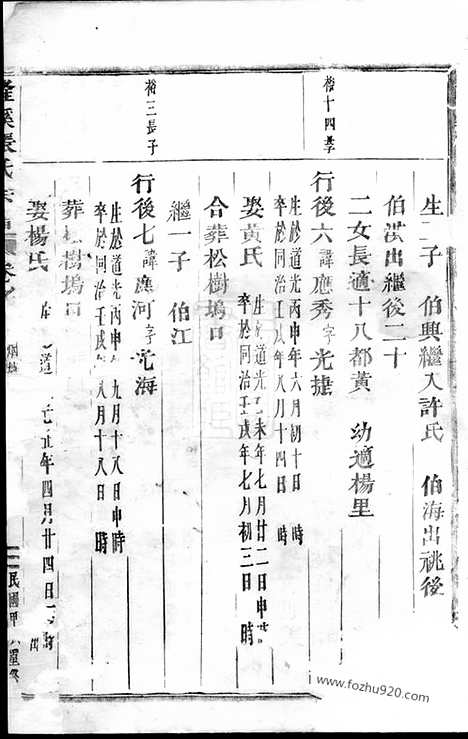 生 子 伯興繼入許氏 伯海出祧後
伯洪出繼後二十
二女長適十八都黃 幼適楊里
裕十四長子
行後六諱應秀字光捷
生於道光丙申年六月初十日 時
卒於同治壬戌年八月十四日 時
娶黃氏
生 道光乙未年七月廿二日申時
卒於同治壬戌年七月初三日 時
合葬松樹塢口
繼一子 伯江
裕三長子
行後七諱應河字光海
生於道光丙申 九月十八日申時
卒於同治壬戌 八月十八日 時
葬松樹塢口
娶楊氏
道 年四月廿四日 時
隆溪張氏宗
民國甲 重修
www.fozhu920.com